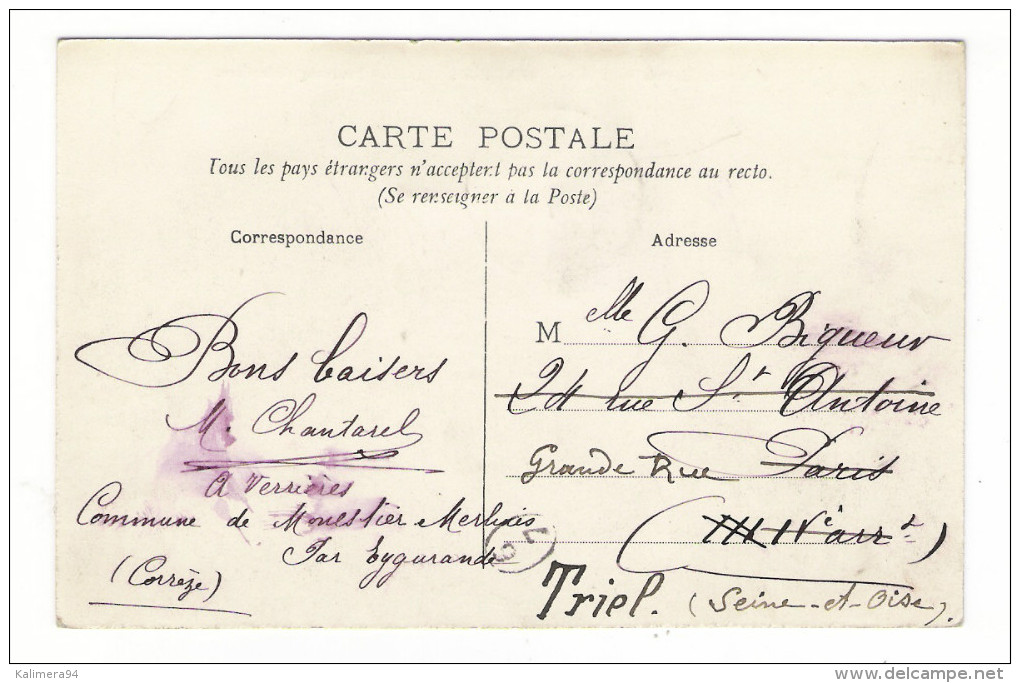 CARTE POSTALE
Tous les pays étrangers n'acceptent pas la correspondance au recto.
(Se renseigner à la Poste)
Correspondance
Bons baisers
M. Chantarel
A Verrières
Commune de Monestier Merlines
Par Eygurande
(Corrèze)
Adresse
Melle G. Biqueur
24 rue St Antoine
Grande Rue Paris
(IVe arrt)
Triel. (Seine-et-Oise).
Kalimera94
www.delcampe.net